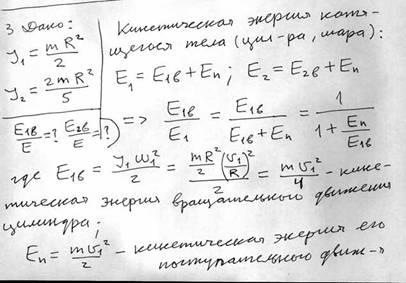 3 Дано:
J₁ = mR²/2
J₂ = 2mR²/5
E₁в/E = ? E₂в/E = ?
Кинетическая энергия катя-
щегося тела (цил-ра, шара):
E₁ = E₁в + Eп; E₂ = E₂в + Eп
=> E₁в/E₁ = E₁в/(E₁в + Eп) = 1/(1 + Eп/E₁в)
где E₁в = J₁ω₁²/2 = (mR²/2 (υ₁/R)²)/2 = mυ₁²/4 - кине-
тическая энергия вращательного движения
цилиндра;
Eп = mυ₁²/2 - кинетическая энергия его
поступательного движ-я